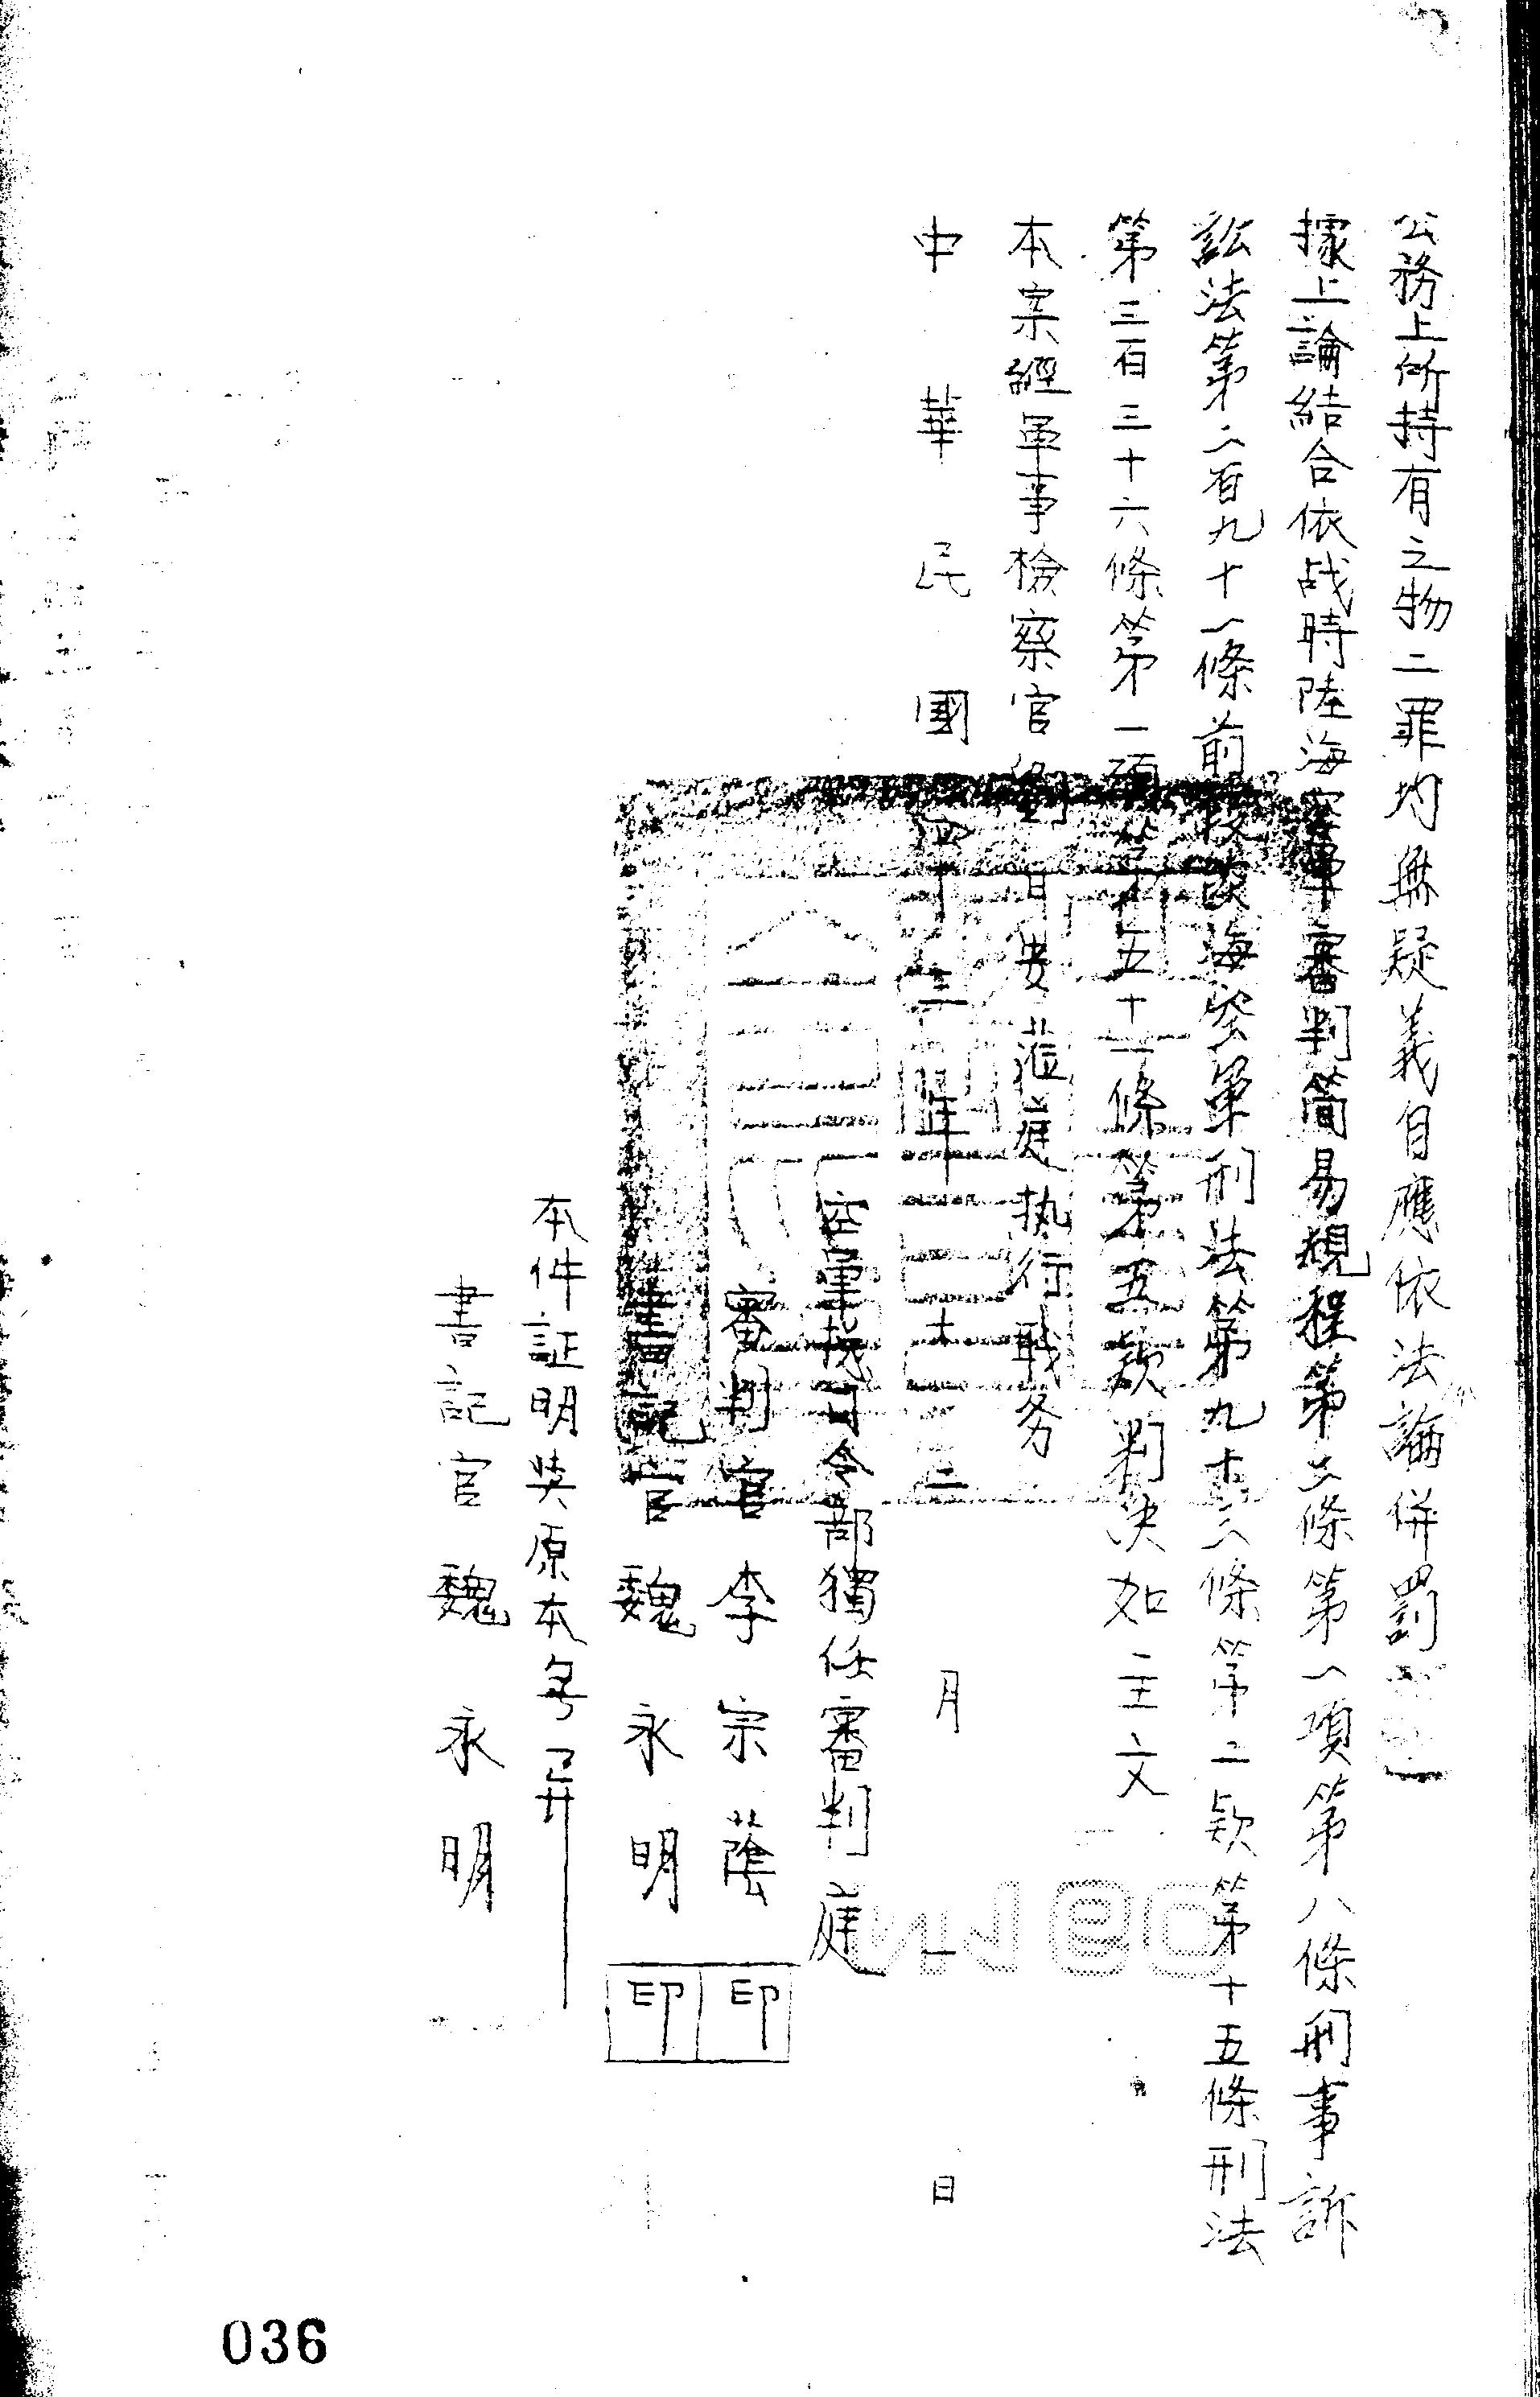 公務上所持有之物二罪均無疑義自應依法論併罰
據上論結合依战時陸海空軍審判简易規程第二條第一項第八條刑事訴
訟法第二百九十一條前段陸海空軍刑法第九十三條第二欵第十五條刑法
第三百三十六條第一項第五十一條第五欵判決如主文
本案經軍事檢察官劉 蒞庭执行职务
中華民國四十三年十二月一日
空軍總司令部獨任審判庭
審判官 李宗蔭 印
書記官 魏永明 印
本件証明與原本無異
書記官 魏永明
036